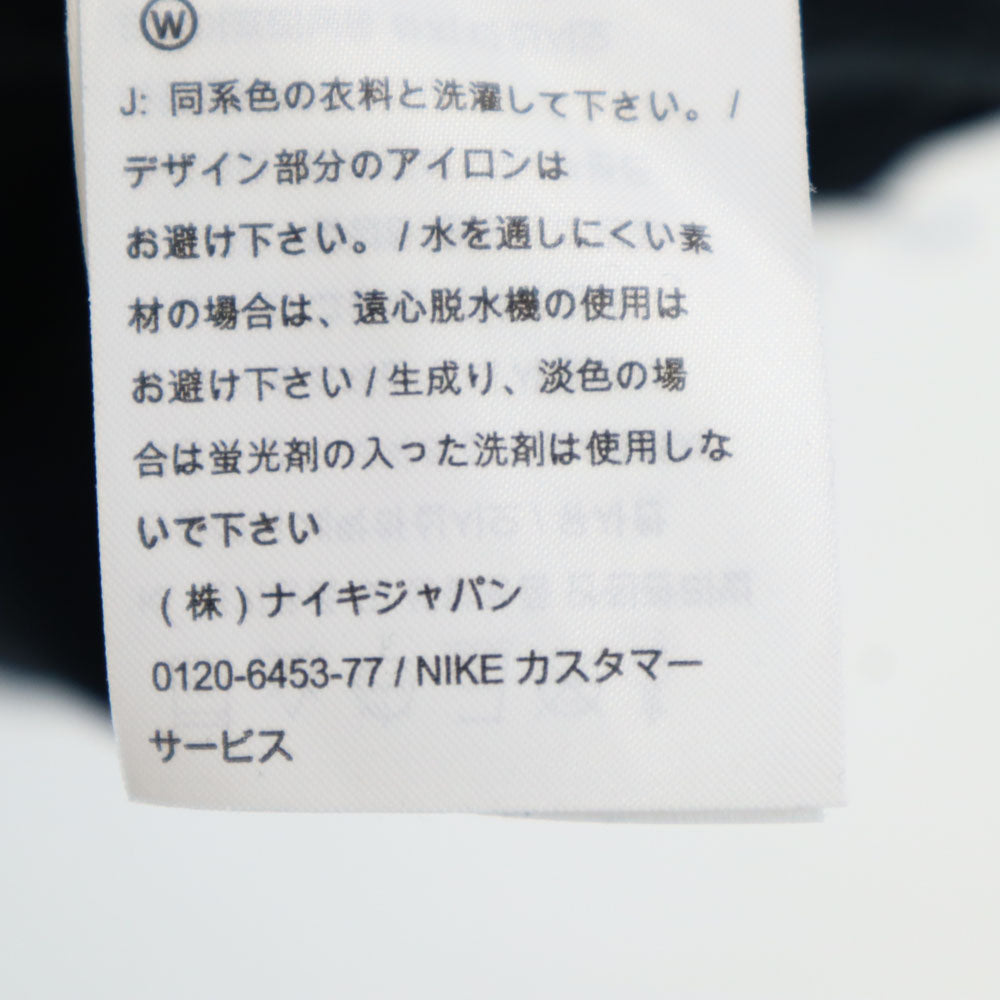 W
J: 同系色の衣料と洗濯して下さい。/
デザイン部分のアイロンは
お避け下さい。/ 水を通しにくい素
材の場合は、遠心脱水機の使用は
お避け下さい / 生成り、淡色の場
合は蛍光剤の入った洗剤は使用しな
いで下さい
(株)ナイキジャパン
0120-6453-77 / NIKE カスタマー
サービス